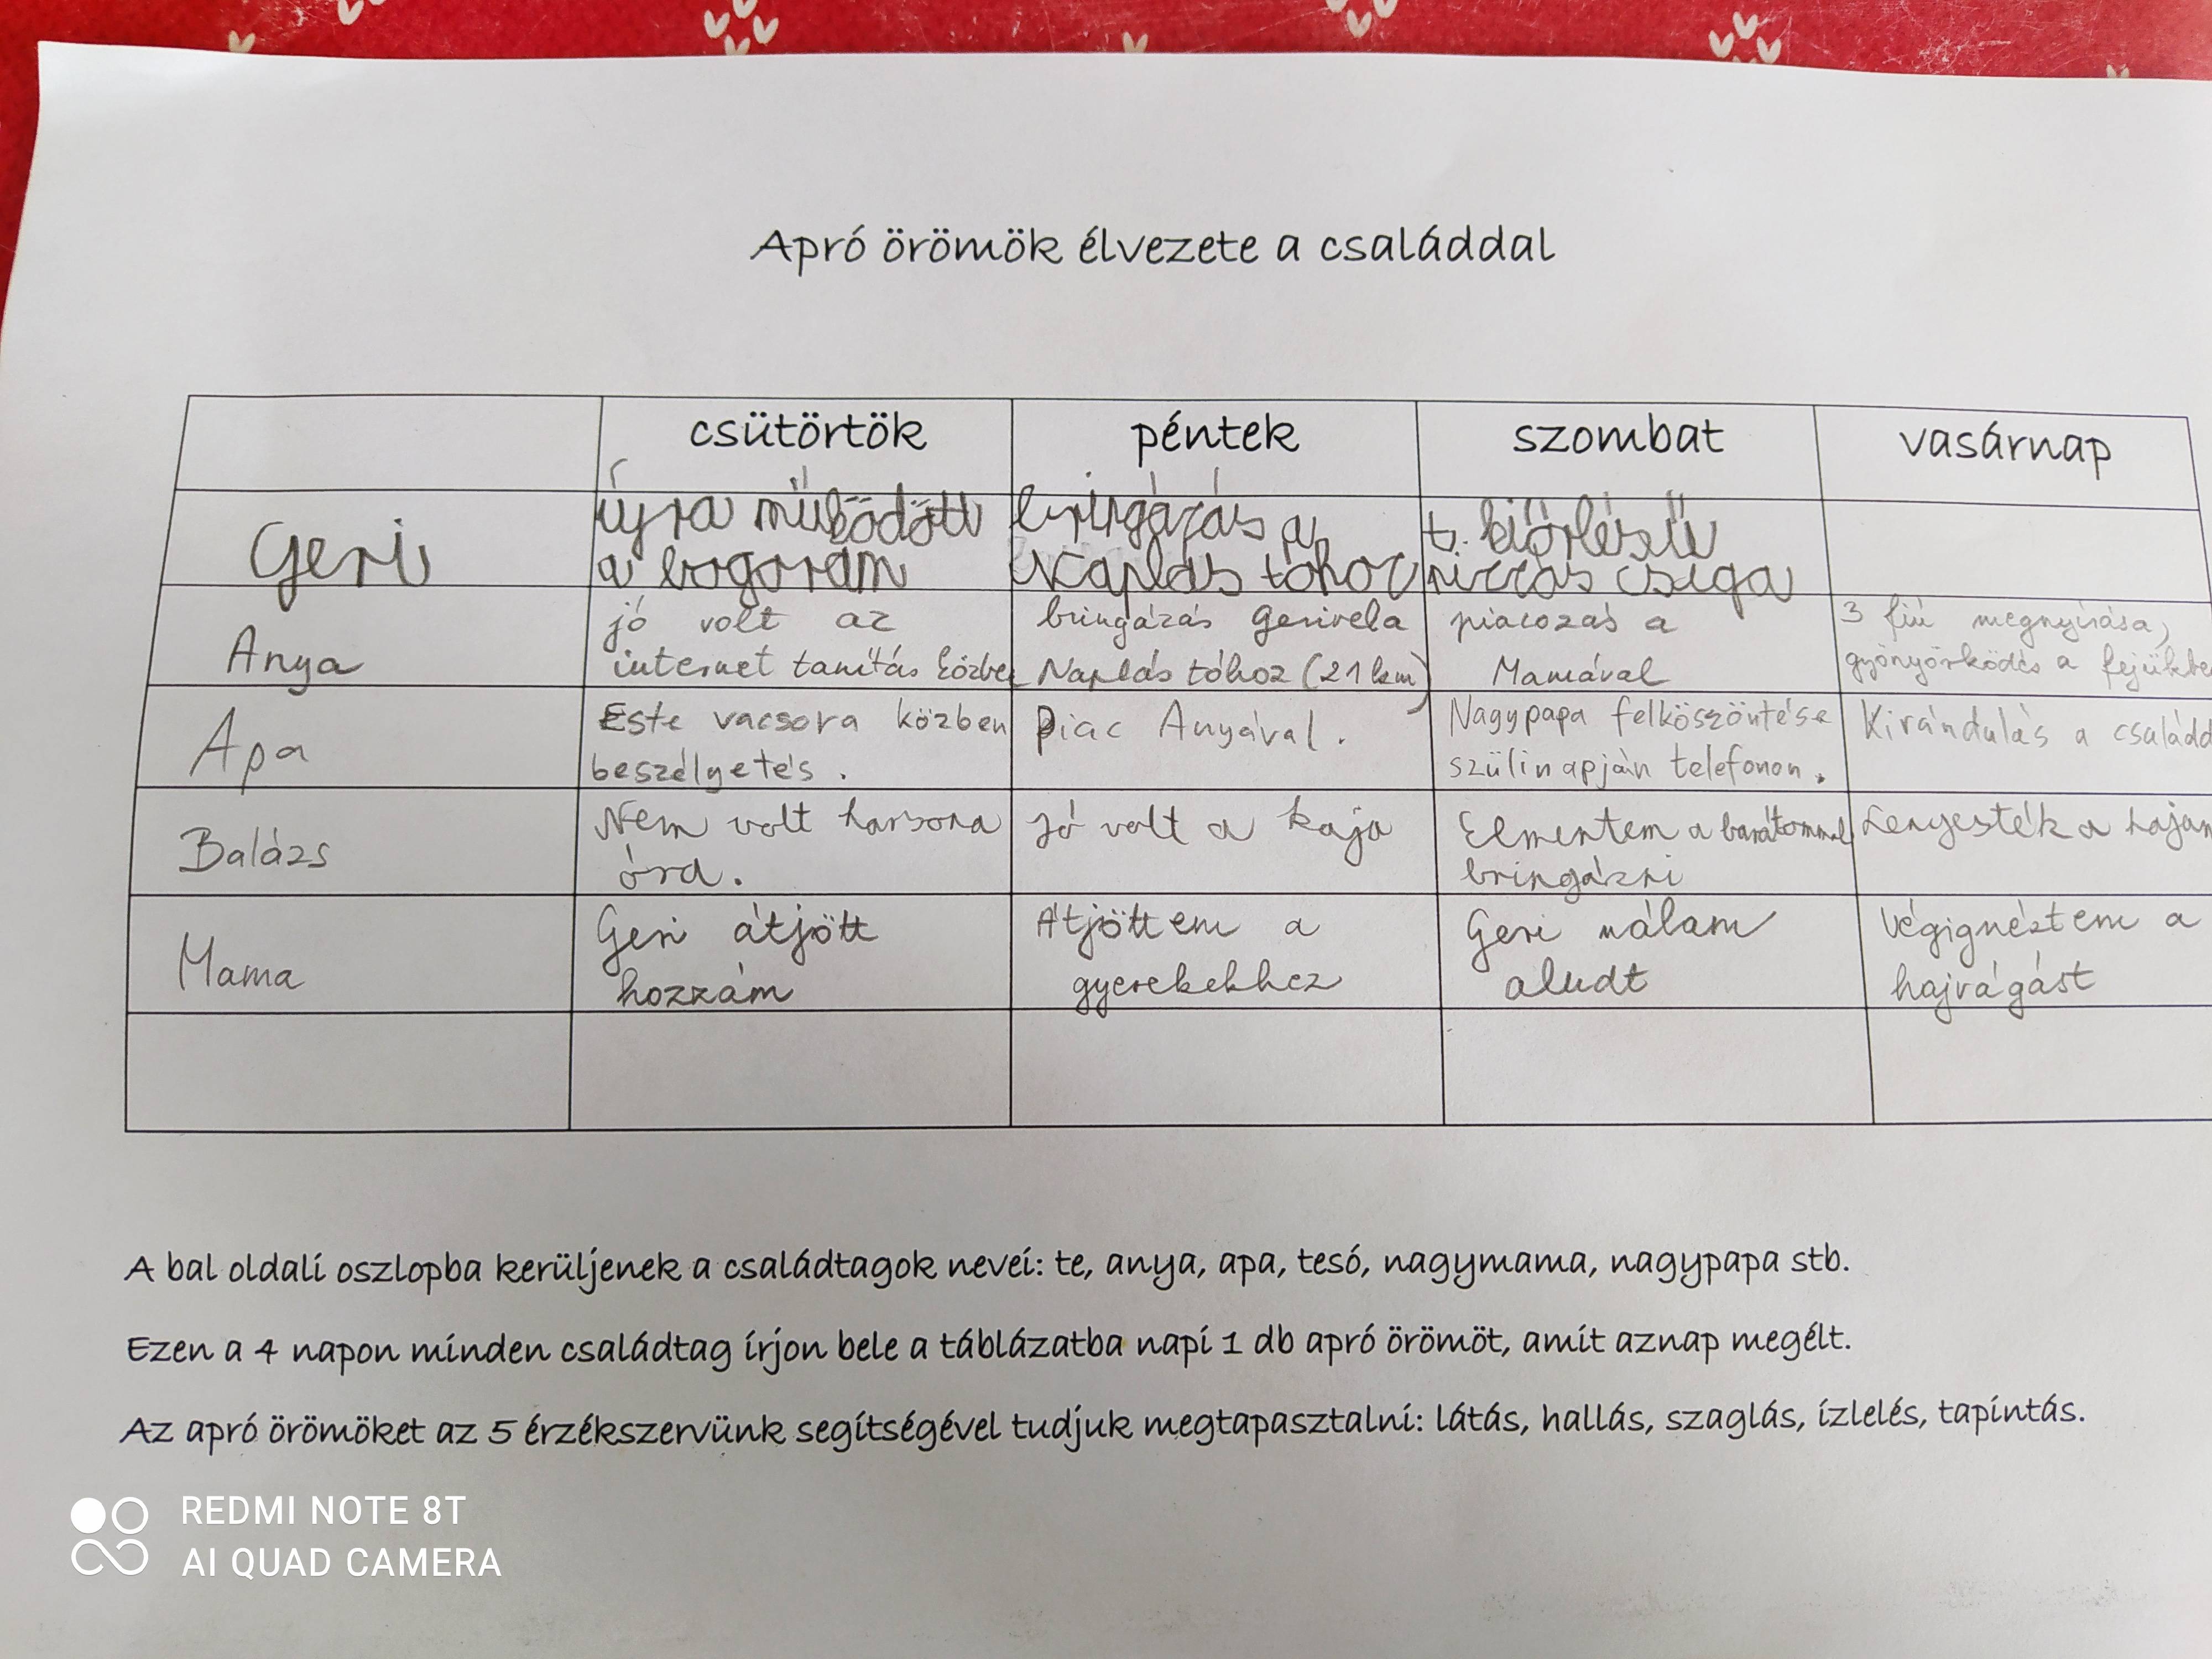 Apró örömök élvezete a családdal
csütörtök péntek szombat vasárnap
Geri
újra működött
a bogoram
bringázás a
Naplás tóhoz
t. kiőrlésű
pizzás csiga
Anya
jó volt az
internet tanítás közben
bringázás Gerivela
Naplás tóhoz (21 km)
piacozás a
Mamával
3 fiú megnyírása,
gyönyörködés a fejükbe
Apa
Este vacsora közben
beszélgetés.
Piac Anyával.
Nagypapa felköszöntése
szülinapján telefonon.
Kirándulás a családd
Balázs
Nem volt harsona
óra.
Jó volt a kaja
Elmentem a barátommal
bringázni
Lenyesték a hajam
Mama
Geri átjött
hozzám
Átjöttem a
gyerekekhez
Geri nálam
aludt
Végignéztem a
hajvágást
A bal oldali oszlopba kerüljenek a családtagok nevei: te, anya, apa, tesó, nagymama, nagypapa stb.
Ezen a 4 napon minden családtag írjon bele a táblázatba napi 1 db apró örömöt, amit aznap megélt.
Az apró örömöket az 5 érzékszervünk segítségével tudjuk megtapasztalni: látás, hallás, szaglás, ízlelés, tapintás.
REDMI NOTE 8T
AI QUAD CAMERA